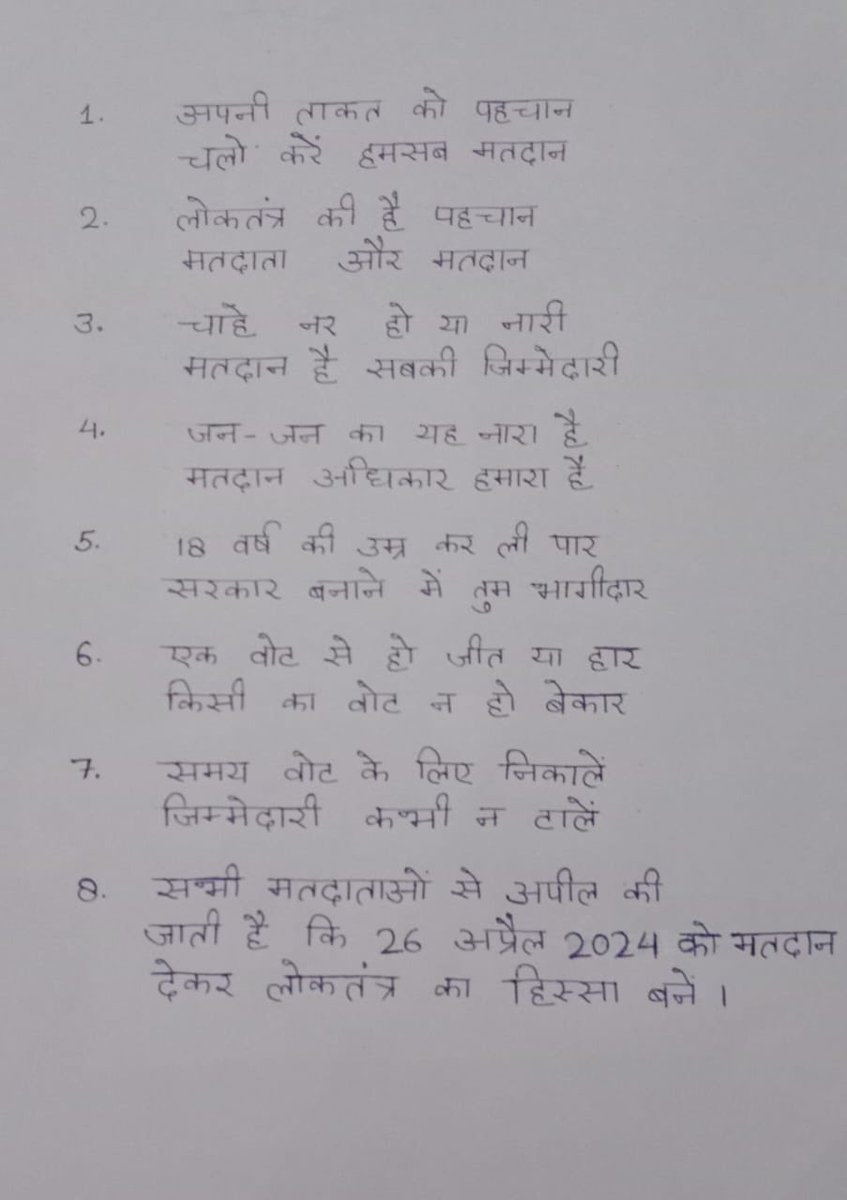 1. अपनी ताकत को पहचान
चलो करें हमसब मतदान
2. लोकतंत्र की है पहचान
मतदाता और मतदान
3. चाहे नर हो या नारी
मतदान है सबकी जिम्मेदारी
4. जन-जन का यह नारा है
मतदान अधिकार हमारा है
5. 18 वर्ष की उम्र कर ली पार
सरकार बनाने में तुम भागीदार
6. एक वोट से हो जीत या हार
किसी का वोट न हो बेकार
7. समय वोट के लिए निकालें
जिम्मेदारी कभी न टालें
8. सभी मतदाताओं से अपील की
जाती है कि 26 अप्रैल 2024 को मतदान
देकर लोकतंत्र का हिस्सा बनें ।